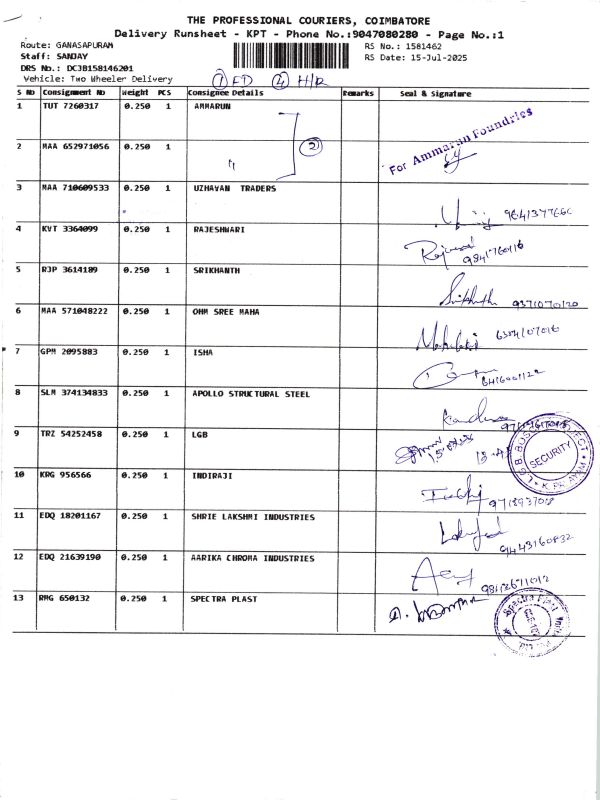 THE PROFESSIONAL COURIERS, COIMBATORE
Delivery Runsheet - KPT - Phone No.:9047080280 - Page No.:1
Route: GANASAPURAM RS No.: 1581462
Staff: SANJAY RS Date: 15-Jul-2025
DRS No.: DCJB158146201
Vehicle: Two Wheeler Delivery ① FD ② H/R
S No Consignment No Weight PCS Consignee Details Remarks Seal & Signature
1 TUT 7260317 0.250 1 AMMARUN
For Ammarun Foundries
2 MAA 652971056 0.250 1 " ②
3 MAA 710609533 0.250 1 UZHAVAN TRADERS
4 KVT 3364099 0.250 1 RAJESHWARI
5 RJP 3614189 0.250 1 SRIKHANTH
9371070120
6 MAA 571048222 0.250 1 OHM SREE MAHA
7 GPM 2095883 0.250 1 ISHA
8 SLM 374134833 0.250 1 APOLLO STRUCTURAL STEEL
9 TRZ 54252458 0.250 1 LGB
SECURITY
10 KRG 956566 0.250 1 INDIRAJI
11 EDQ 18201167 0.250 1 SHRIE LAKSHMI INDUSTRIES
9443160832
12 EDQ 21639190 0.250 1 AARIKA CHROMA INDUSTRIES
13 RMG 650132 0.250 1 SPECTRA PLAST
Spectra Plast